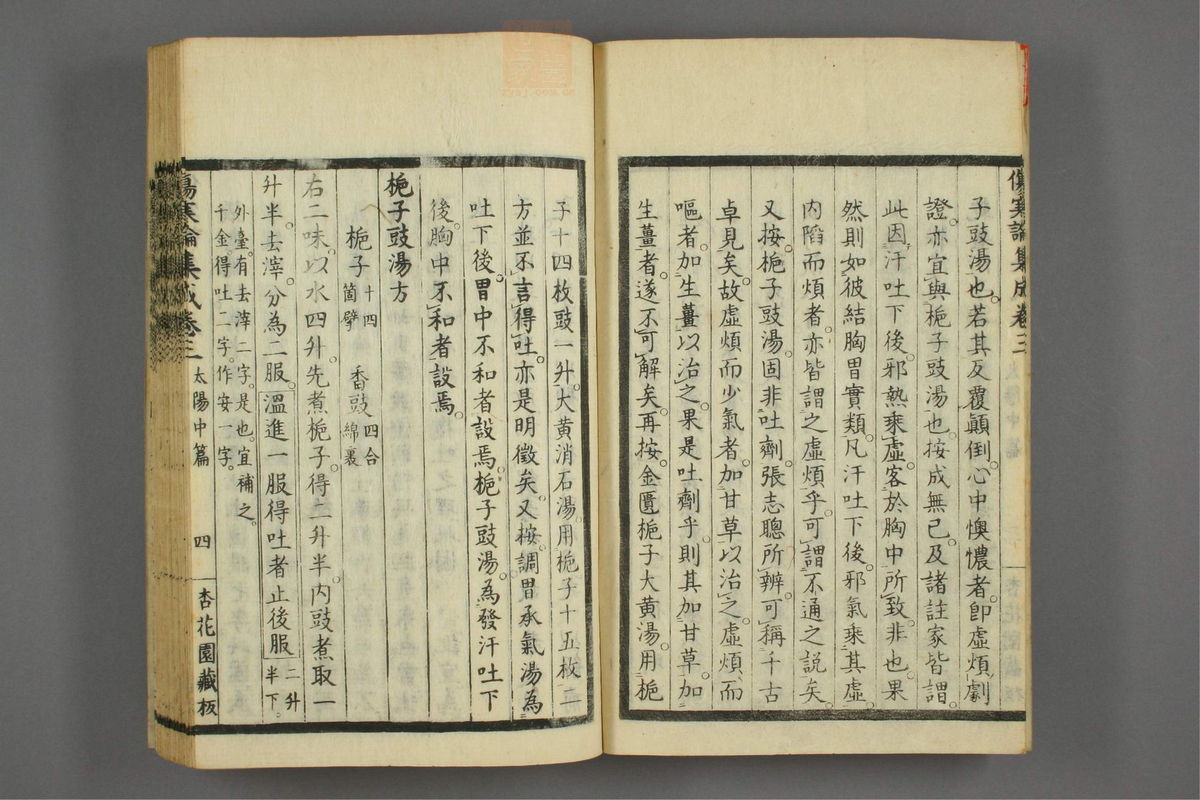 傷寒論集成卷三
子豉湯也。若其反覆顛倒。心中懊憹者。卽虛煩劇
證。亦宜與梔子豉湯也按成無已。及諸註家皆謂。
此因汗吐下後。邪熱乘虛。客於胸中所致。非也。果
然則如彼結胸胃實類。凡汗吐下後。邪氣乘其虛
內陷而煩者。亦皆謂之虛煩乎。可謂不通之說矣
又按。梔子豉湯。固非吐劑。張志聰所辨。可稱千古
卓見矣。故虛煩而少氣者。加甘草以治之。虛煩而
嘔者。加生薑以治之。果是吐劑乎。則其加甘草。加
生薑者。遂不可解矣。再按。金匱梔子大黃湯。用梔
子十四枚豉一升。大黃消石湯用梔子十五枚。二
方並不言得吐。亦是明徵矣。又按。調胃承氣湯為
吐下後。胃中不和者設焉。梔子豉湯。為發汗吐下
後。胸中不和者設焉。
梔子豉湯方
梔子十四箇擘 香豉四合綿裹
右二味。以水四升。先煮梔子。得二升半。內豉煮取一
升半。去滓。分為二服。溫進一服得吐者止後服二升半下。
外臺。有去滓二字。是也。宜補之。
千金得吐二字。作安一字。
傷寒論集成卷三 太陽中篇 四 杏花園藏板